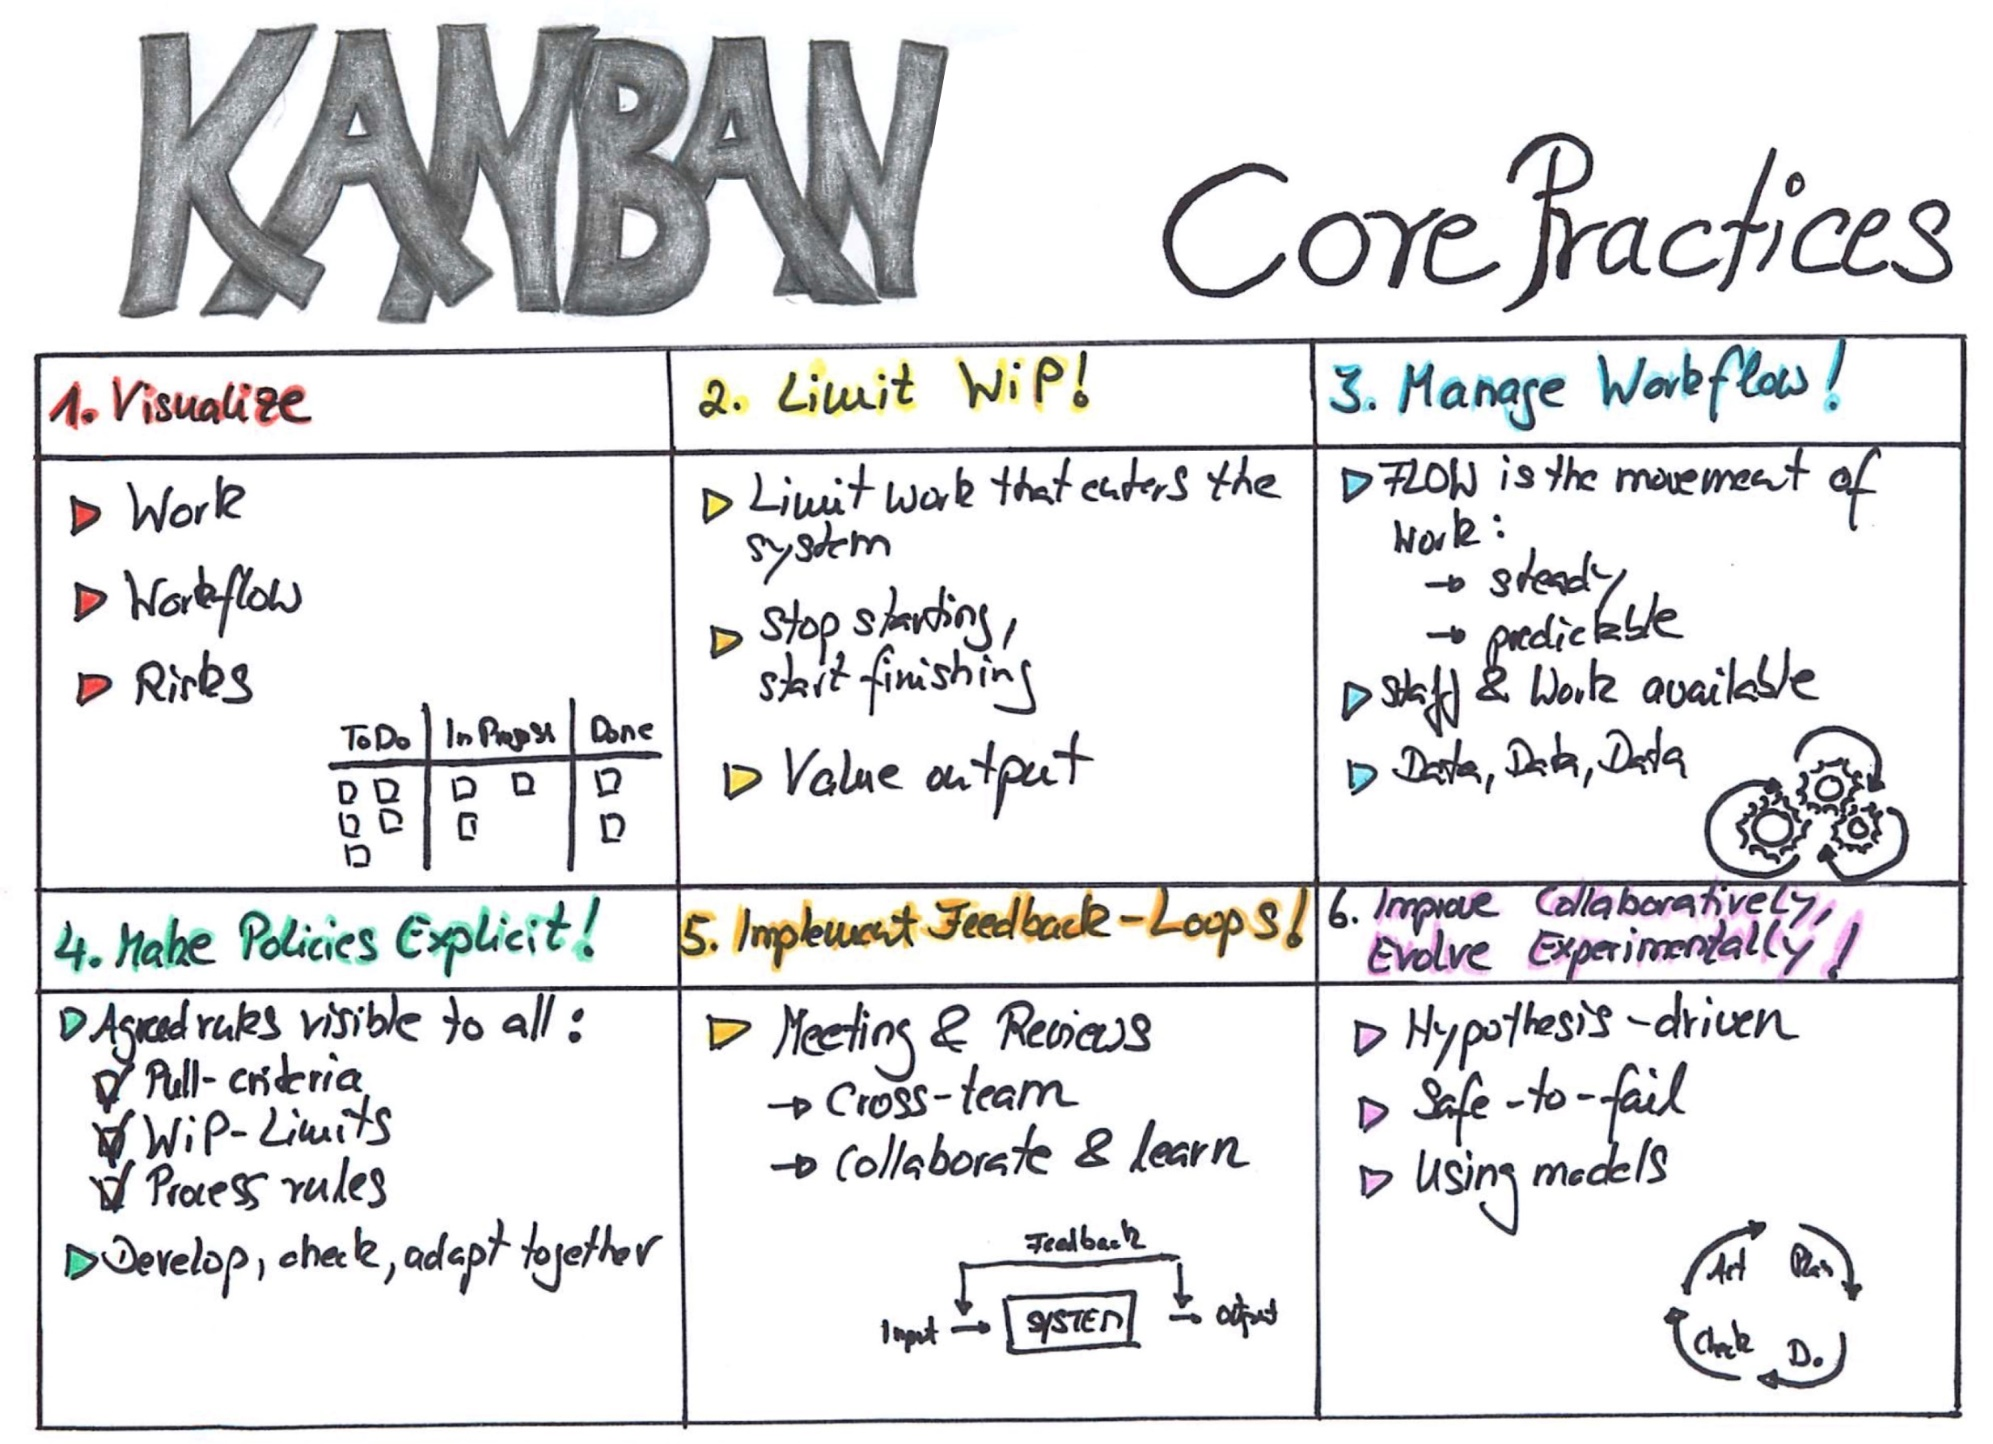 KANBAN
Core Practices
1. Visualize
Work
Workflow
Risks
ToDo | In Progress | Done
2. Limit WiP!
Limit work that enters the
system
Stop starting,
start finishing
Value output
3. Manage Workflow!
FLOW is the movement of
Work:
→ steady
→ predictable
Staff & Work available
Data, Data, Data
4. Make Policies Explicit!
Agreed rules visible to all:
Pull-criteria
WiP-Limits
Process rules
Develop, check, adapt together
5. Implement Feedback-Loops!
Meeting & Reviews
→ Cross-team
→ Collaborate & learn
Feedback
Input → SYSTEM → Output
6. Improve Collaboratively,
Evolve Experimentally!
Hypothesis-driven
Safe-to-fail
Using models
Act Plan
Check Do